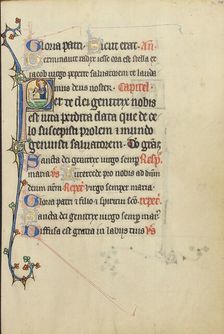 Gloria patri Sicut erat. An̄
Germinavit radix iesse orta est stella ex
iacob virgo peperit salvatorem te lauda
mus deus noster. Capitel̄
Per te dei genitrix nobis
est vita perdita data que de ce
lo suscepisti prolem ⁊ mundo
genuisti salvatorem. Deo grās
Sancta dei genitrix virgo semper Resp̄
maria V̄s Intercede pro nobis ad dūm
deum nr̄m Repet̄ virgo semper maria
Gloria patri ⁊ filio ⁊ spiritui sc̄o repet̄
Sancta dei genitrix virgo semper mar̄
Diffusa est gratia in labijs tuis V̄s